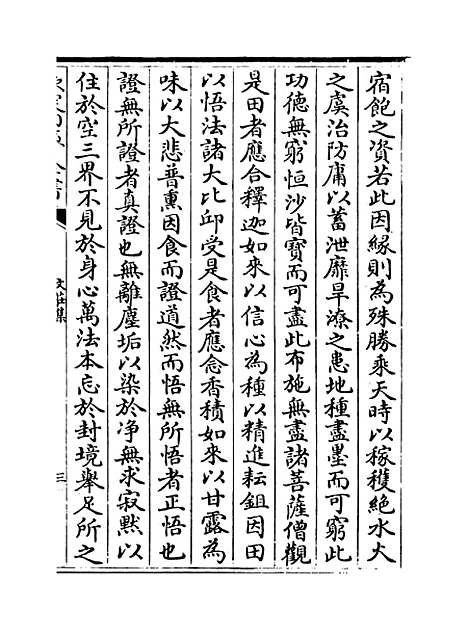 宿飽之資若此因緣則為殊勝乘天時以稼穡絶水大
之虞治防庸以蓄泄靡旱潦之患地種盡墨而可窮此
功德無窮恒沙皆寶而可盡此布施無盡諸菩薩僧觀
是田者應合釋迦如來以信心為種以精進耘鉏因田
以悟法諸大比邱受是食者應念香積如來以甘露為
味以大悲普熏因食而證道然而悟無所悟者正悟也
證無所證者真證也無離塵垢以染於净無求寂默以
住於空三界不見於身心萬法本忘於封境舉足所之
文莊集
三